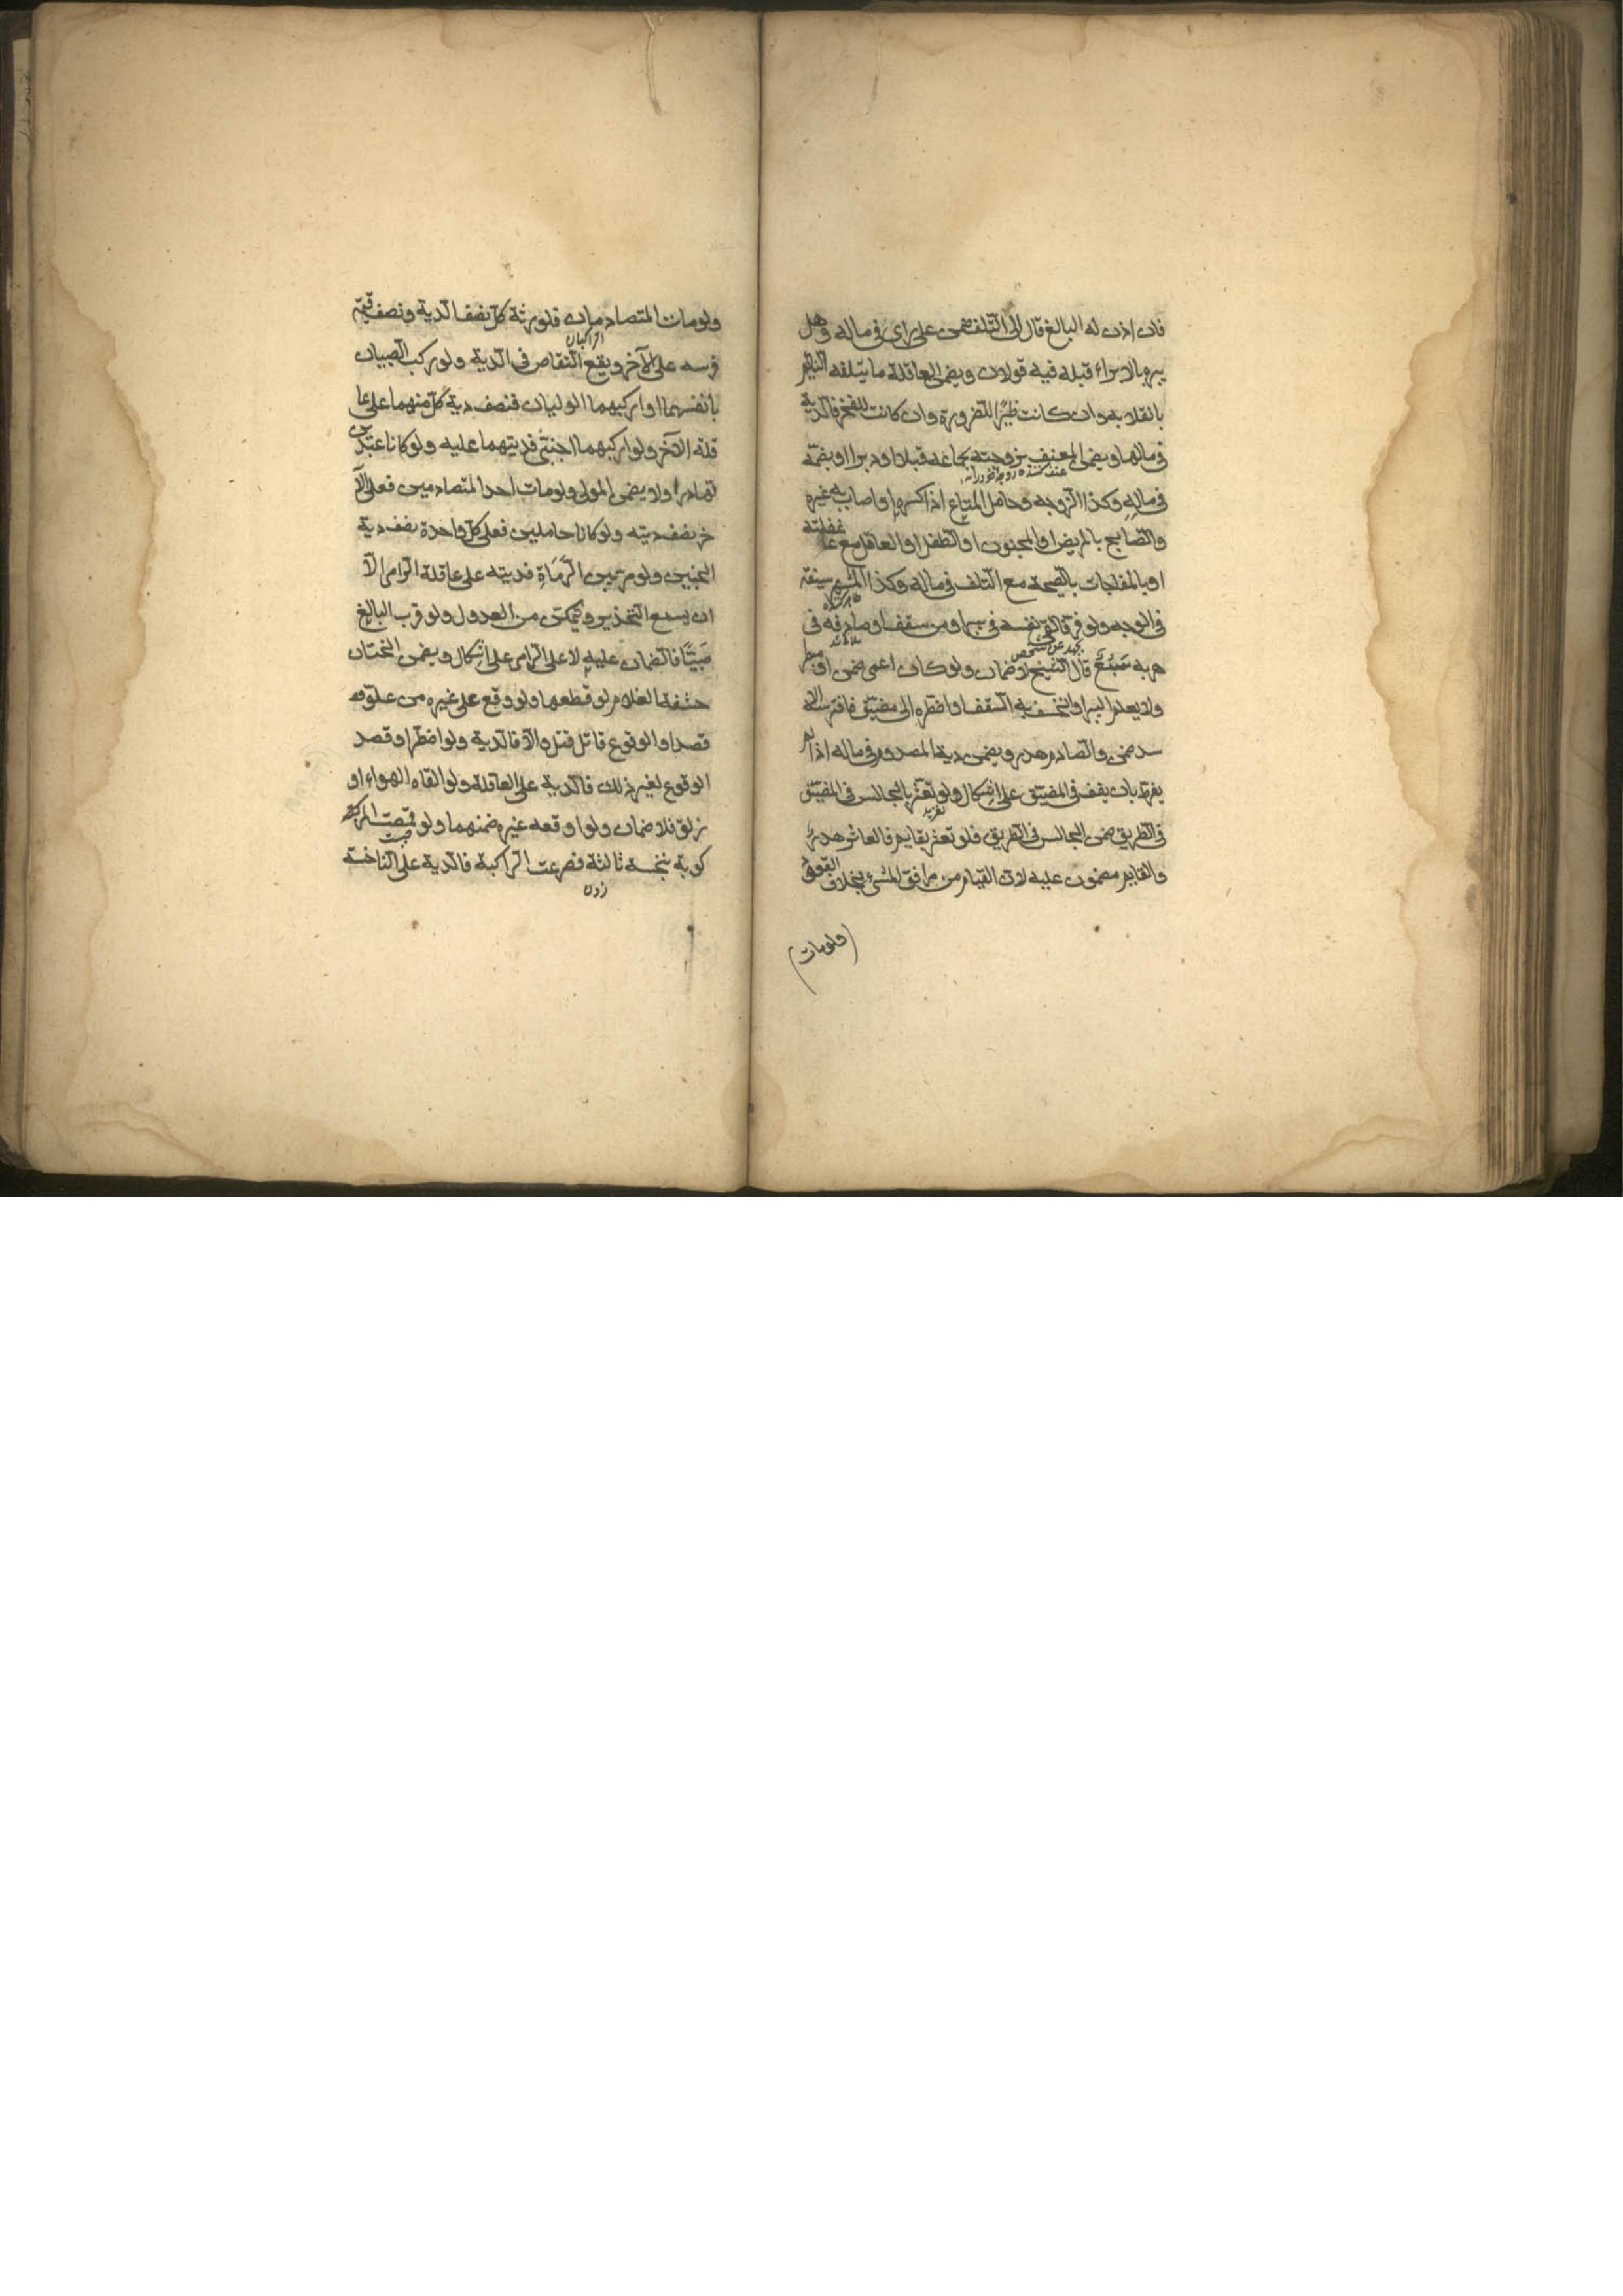 فان اذن له البالغ فال الى التلف ضمن على راى فى ماله وهل
يبرء بالابراء قبله فيه قولان ويضمن العاقلة ما يتلفه النائم
بانقلابه وان كانت ظئرا للضرورة وان كانت للفخر فالدية
فى مالها ويضمن المعنف بزوجته بجماعه قبلا او دبرا او بضمّه
فى ماله وكذا الزوجه وحامل المتاع اذا كسره او اصاب به غيره
والصايح بالمريض او المجنون او الطفل او العاقل مع غفلته
او بالمفاجات بالصيحة مع التلف فى ماله وكذا المشهر سيفه
فى الوجه ولو فر فالقى نفسه فى بئر او من سقف او صادفه فى
هربه سبع قال الشيخ لا ضمان ولو كان اعمى ضمن او مبصر
ولا يعلم البئر او انخسف به السقف او اضطره الى مضيق فافترسه الا
سد ضمن والصادم هدر ويضمن دية المصدوم فى ماله اذا لم
يفرط بان يقف فى المضيق على اشكال ولو تعثر بالجالس فى المضيق
فى الطريق ضمن الجالس فى الطريق فلو تعثر بقايم فالعاثر هدر
والقايم مضمون عليه لان القيام من مرافق المشى بخلاف القعود
ولو مات
ولو مات المتصادمان فلورثة كل نصف الدية ونصف قيمة
الراكبان
فرسه على الآخر ويقع التقاص فى الدية ولو ركب الصبيان
بانفسهما او اركبهما الوليان فنصف دية كل منهما على عا
قلة الآخر ولو اركبهما اجنبى فديتهما عليه ولو كانا عبدين
تهادرا ولا يضمن المولى ولو مات احد المتصادمين فعلى الآ
خر نصف ديته ولو كانا حاملين فعلى كل واحدة نصف دية
الجنين ولو مر بين الرماة فديته على عاقلة الرامى الا
ان يسمع التحذير ويتمكن من العدول ولو قرب البالغ
صبيا فالضمان عليه لا على الرامى على اشكال ويضمن الختان
حشفة الغلام لو قطعها ولو وقع على غيره من علو فه
قصدا والوقوع قاتل قتل والا فالدية ولو اضطر او قصد
الوقوع لغير ذلك فالدية على العاقلة ولو القاه الهواء او
زلق فلا ضمان ولو اوقعه غيره ضمنهما ولو قمصت المر
كوبة بنخسة ثالثة فصرعت الراكبة فالدية على الناخسة
زدن